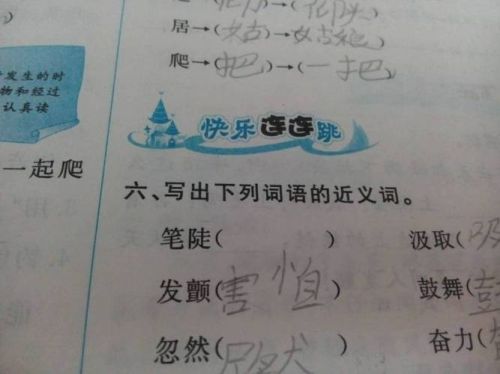 居→(姑)→(姑娘)
爬→(把)→(一把)
发生的时
物和经过
认真读
一起爬
快乐连连跳
六、写出下列词语的近义词。
笔陡( ) 汲取(吸
发颤(害 ) 鼓舞(鼓
忽然( ) 奋力(